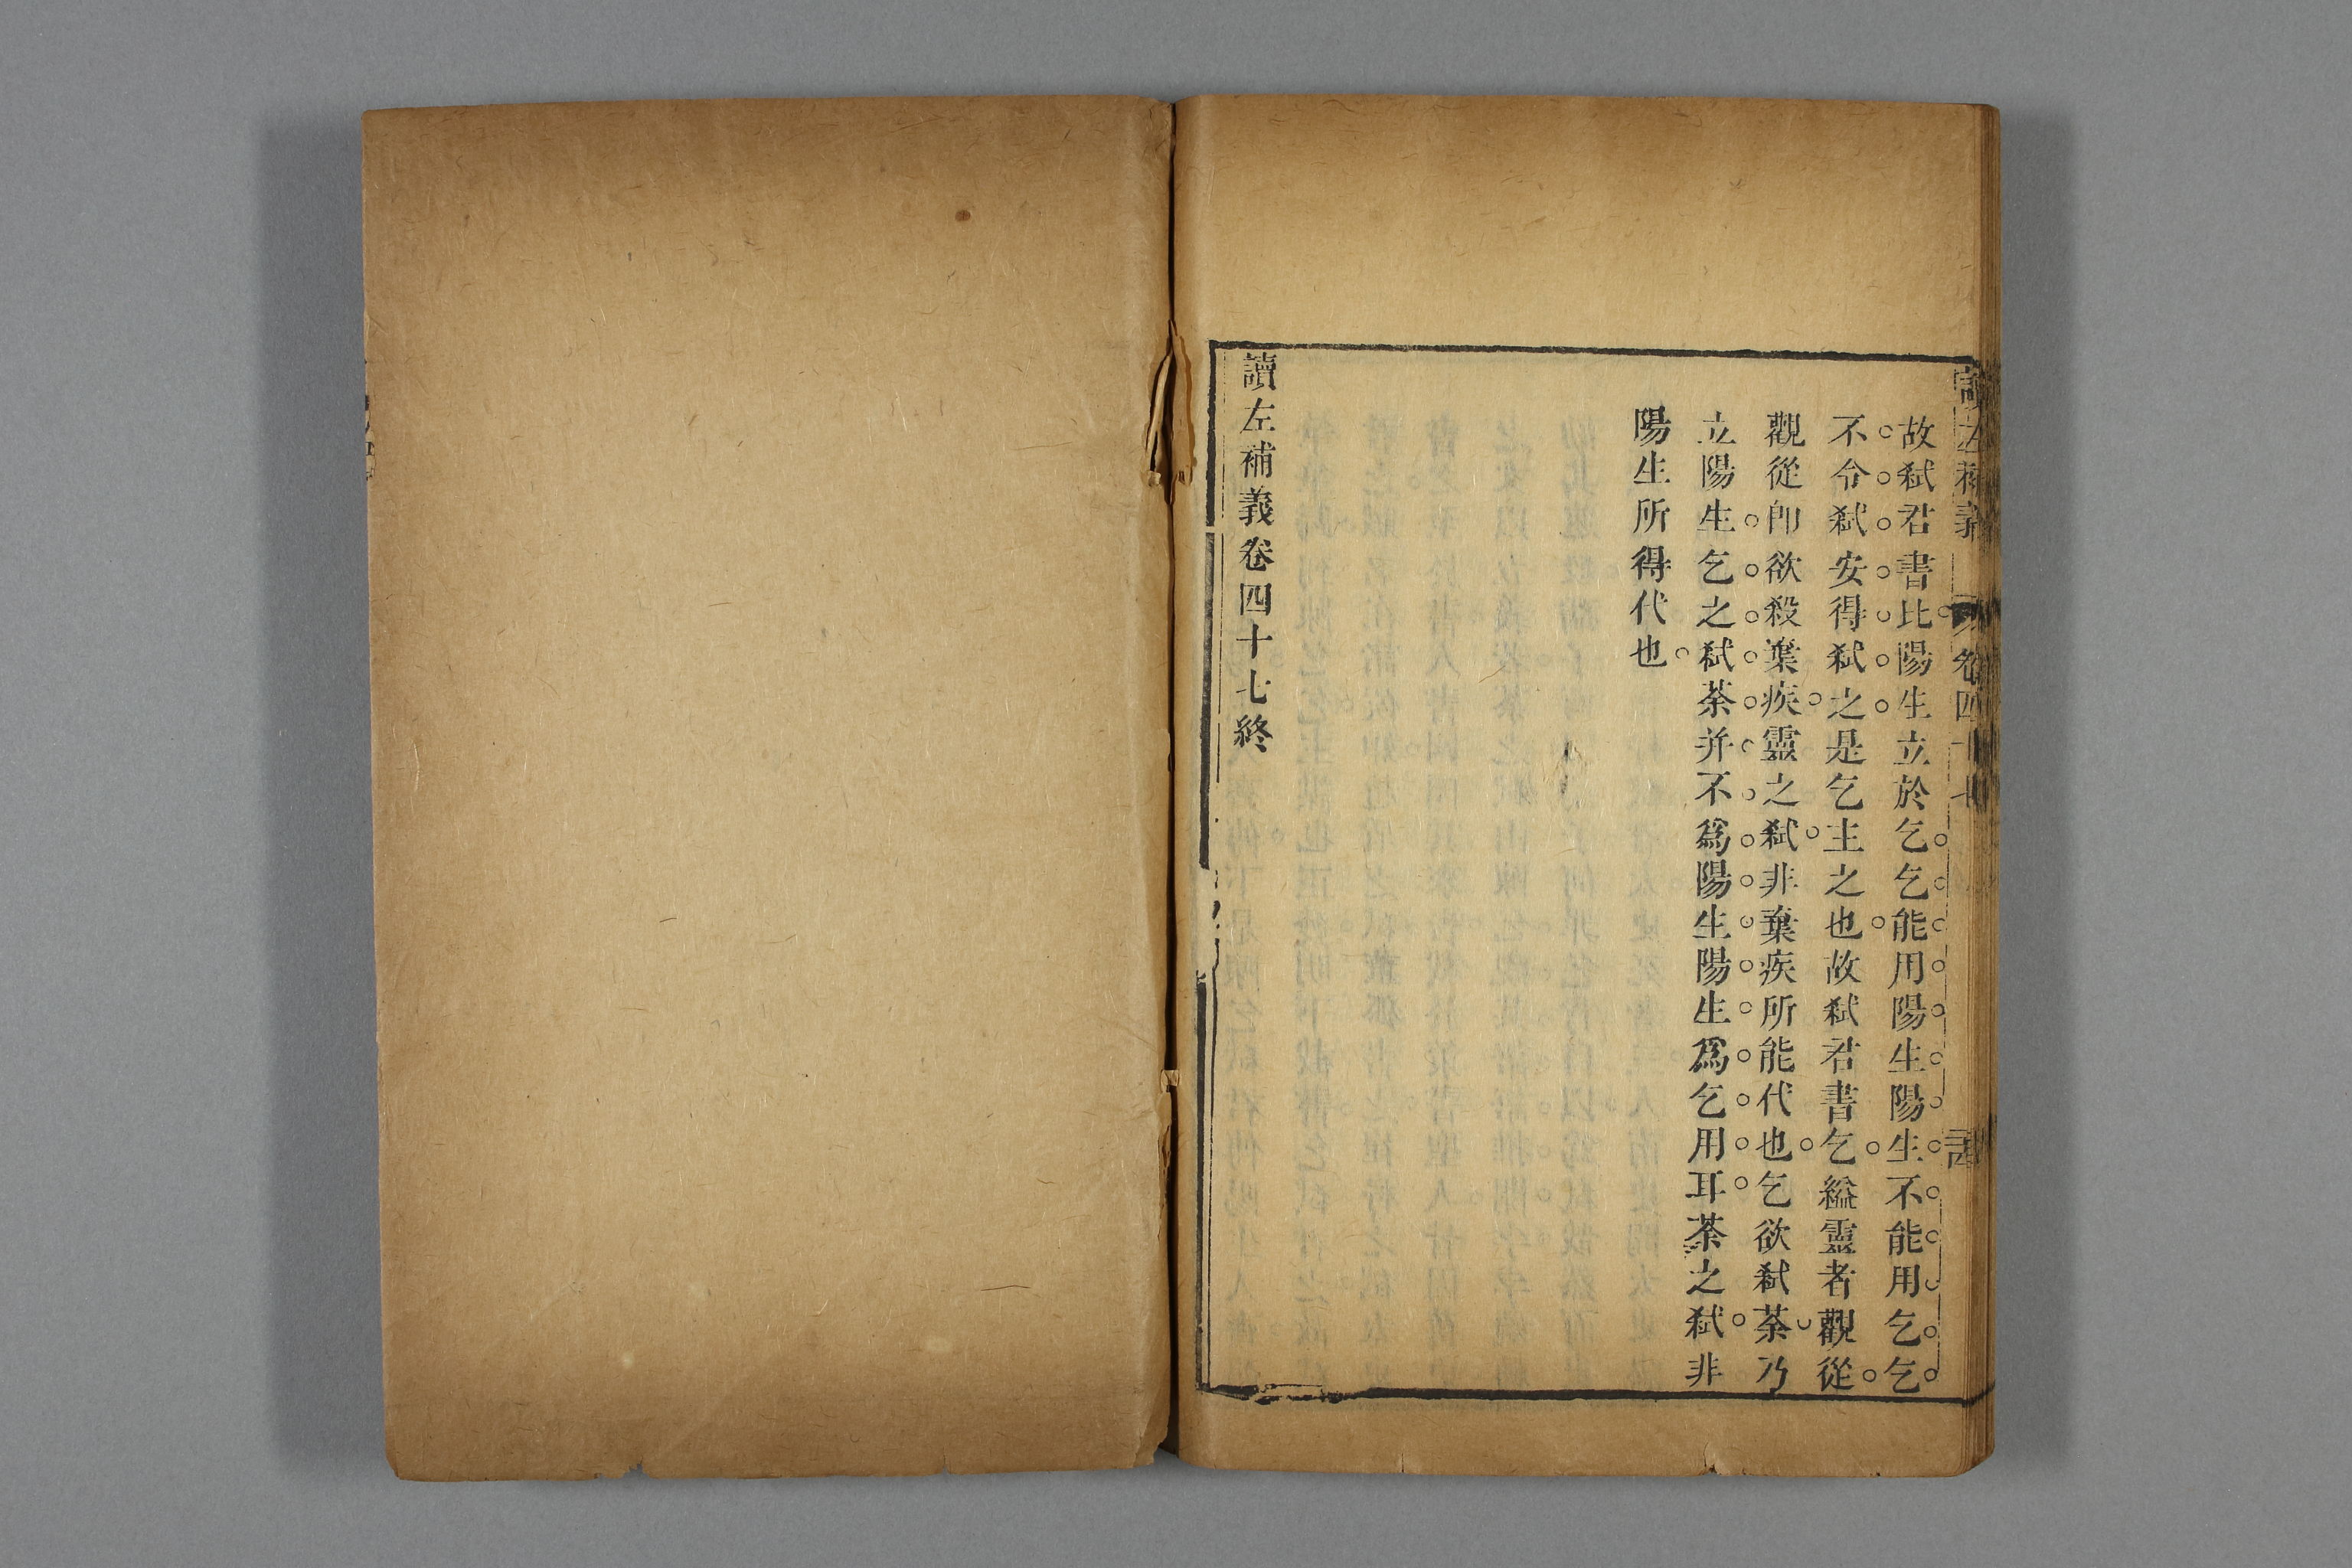 故弑君書比陽生立於乞乞能用陽生陽生不能用乞乞
不令弑安得弑之是乞主之也故弑君書乞縊靈者觀從
觀從卽欲殺棄疾靈之弑非棄疾所能代也乞欲弑荼乃
立陽生乞之弑荼并不爲陽生陽生爲乞用耳荼之弑非
陽生所得代也
讀左補義卷四十七終